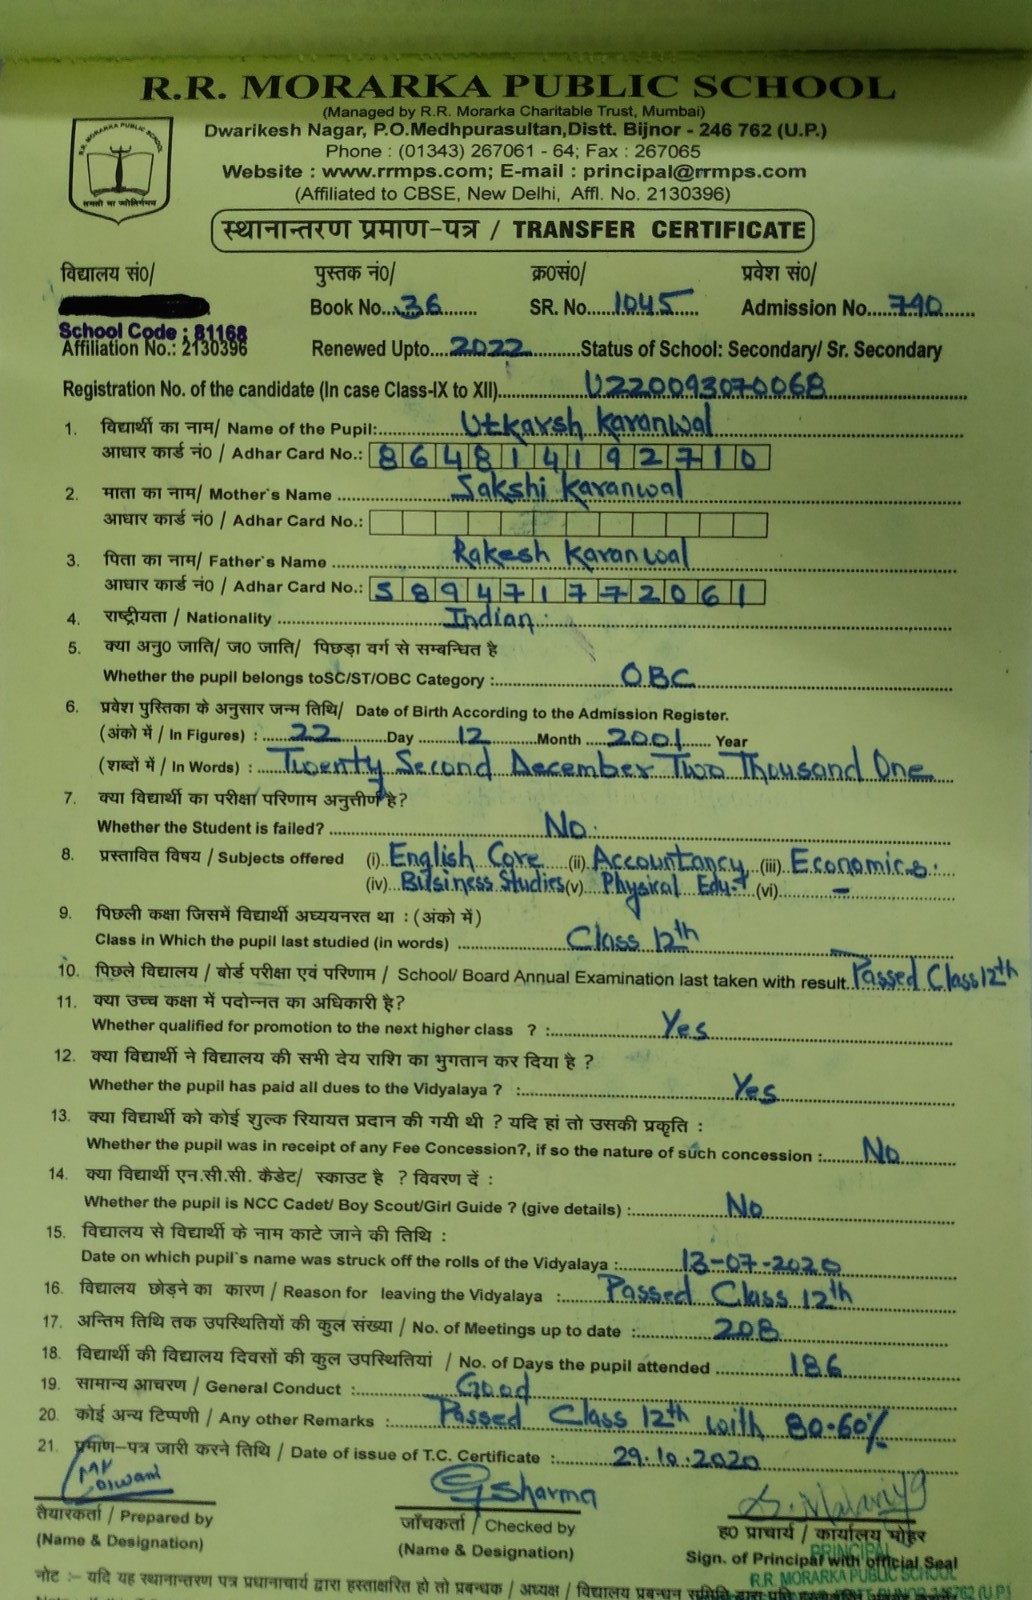 R.R. MORARKA PUBLIC SCHOOL
(Managed by R.R. Morarka Charitable Trust, Mumbai)
Dwarikesh Nagar, P.O.Medhpurasultan,Distt. Bijnor - 246 762 (U.P.)
Phone : (01343) 267061 - 64; Fax : 267065
Website : www.rrmps.com; E-mail : principal@rrmps.com
(Affiliated to CBSE, New Delhi, Affl. No. 2130396)
R.R. MORARKA PUBLIC SCHOOL
तमसो मा ज्योतिर्गमय
स्थानान्तरण प्रमाण-पत्र / TRANSFER CERTIFICATE
विद्यालय सं0/ पुस्तक नं0/ क्र0सं0/ प्रवेश सं0/
Book No. 36 SR. No. 1045 Admission No. 790
School Code : 81168
Affiliation No.: 2130396 Renewed Upto 2022 Status of School: Secondary/ Sr. Secondary
Registration No. of the candidate (In case Class-IX to XII) U220093070068
1. विद्यार्थी का नाम/ Name of the Pupil: Utkarsh Karanwal
आधार कार्ड नं0 / Adhar Card No.: 864814192710
2. माता का नाम/ Mother`s Name Sakshi Karanwal
आधार कार्ड नं0 / Adhar Card No.:
3. पिता का नाम/ Father`s Name Rakesh Karanwal
आधार कार्ड नं0 / Adhar Card No.: 589471772061
4. राष्ट्रीयता / Nationality Indian
5. क्या अनु0 जाति/ ज0 जाति/ पिछड़ा वर्ग से सम्बन्धित है
Whether the pupil belongs toSC/ST/OBC Category : OBC
6. प्रवेश पुस्तिका के अनुसार जन्म तिथि/ Date of Birth According to the Admission Register.
(अंको में / In Figures) : 22 Day 12 Month 2001 Year
(शब्दों में / In Words) : Twenty Second December Two Thousand One
7. क्या विद्यार्थी का परीक्षा परिणाम अनुत्तीर्ण है?
Whether the Student is failed? No
8. प्रस्तावित विषय / Subjects offered (i) English Core (ii) Accountancy (iii) Economics
(iv) Business Studies (v) Physical Edu. (vi) -
9. पिछली कक्षा जिसमें विद्यार्थी अघ्ययनरत था : (अंको में)
Class in Which the pupil last studied (in words) Class 12th
10. पिछले विद्यालय / बोर्ड परीक्षा एवं परिणाम / School/ Board Annual Examination last taken with result Passed Class 12th
11. क्या उच्च कक्षा में पदोन्नत का अधिकारी है?
Whether qualified for promotion to the next higher class ? : Yes
12. क्या विद्यार्थी ने विद्यालय की सभी देय राशि का भुगतान कर दिया है ?
Whether the pupil has paid all dues to the Vidyalaya ? : Yes
13. क्या विद्यार्थी को कोई शुल्क रियायत प्रदान की गयी थी ? यदि हां तो उसकी प्रकृति :
Whether the pupil was in receipt of any Fee Concession?, if so the nature of such concession : No
14. क्या विद्यार्थी एन.सी.सी. कैडेट/ स्काउट है ? विवरण दें :
Whether the pupil is NCC Cadet/ Boy Scout/Girl Guide ? (give details) : No
15. विद्यालय से विद्यार्थी के नाम काटे जाने की तिथि :
Date on which pupil`s name was struck off the rolls of the Vidyalaya : 13-07-2020
16. विद्यालय छोड़ने का कारण / Reason for leaving the Vidyalaya : Passed Class 12th
17. अन्तिम तिथि तक उपस्थितियों की कुल संख्या / No. of Meetings up to date : 208
18. विद्यार्थी की विद्यालय दिवसों की कुल उपस्थितियां / No. of Days the pupil attended 186
19. सामान्य आचरण / General Conduct : Good
20. कोई अन्य टिप्पणी / Any other Remarks : Passed Class 12th with 80.60%
21. प्रमाण-पत्र जारी करने तिथि / Date of issue of T.C. Certificate : 29.10.2020
Sharma
तैयारकर्ता / Prepared by जाँचकर्ता / Checked by ह0 प्राचार्य / कार्यालय मोहर
(Name & Designation) (Name & Designation) Sign. of Principal with official Seal
PRINCIPAL
R.R. MORARKA PUBLIC SCHOOL
नोट :- यदि यह स्थानान्तरण पत्र प्रधानाचार्य द्वारा हस्ताक्षरित हो तो प्रबन्धक / अध्यक्ष / विद्यालय प्रबन्धन समिति द्वारा